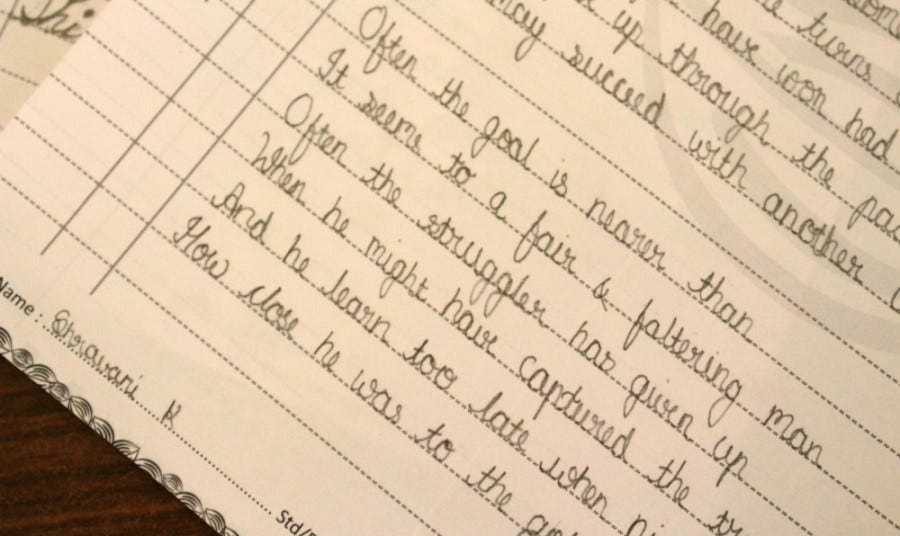 turns
have won had
up through the
may succeed with another
Often the goal is nearer than
It seems to a fair & faltering man
Often the struggler has given up
When he might have captured the
And he learn too late when
How close he was to the
Name : Shrawani K
Std/